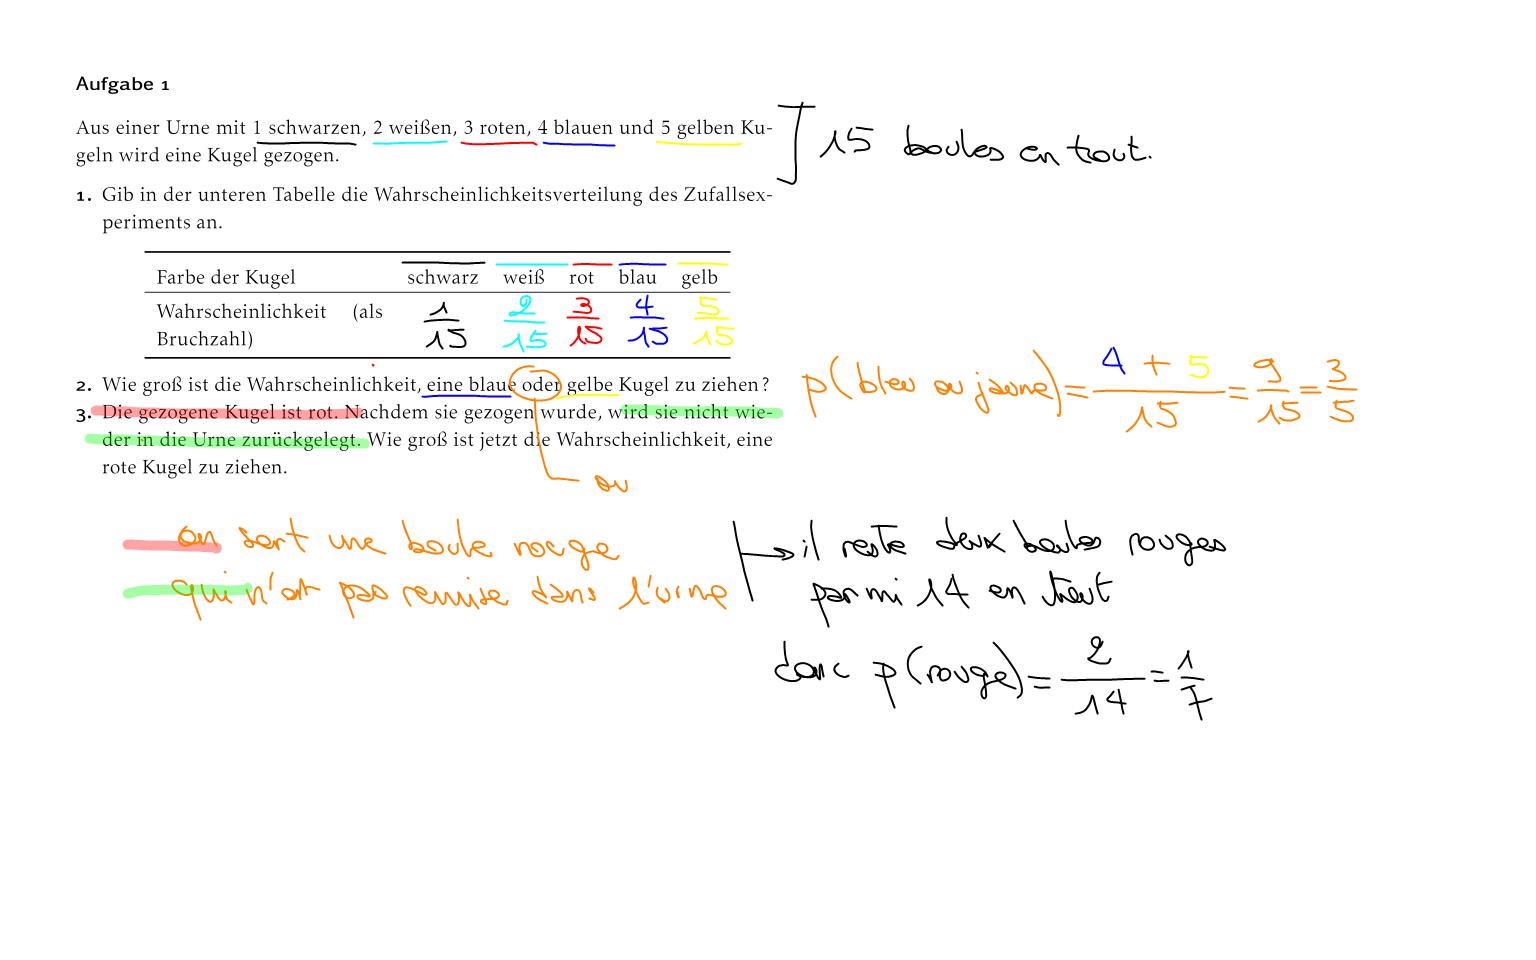 Aufgabe 1
Aus einer Urne mit 1 schwarzen, 2 weißen, 3 roten, 4 blauen und 5 gelben Ku-
geln wird eine Kugel gezogen.
15 boules en tout.
1. Gib in der unteren Tabelle die Wahrscheinlichkeitsverteilung des Zufallsex-
periments an.
Farbe der Kugel schwarz weiß rot blau gelb
Wahrscheinlichkeit (als
Bruchzahl) 1/15 2/15 3/15 4/15 5/15
2. Wie groß ist die Wahrscheinlichkeit, eine blaue oder gelbe Kugel zu ziehen?
p(bleu ou jaune) = (4 + 5)/15 = 9/15 = 3/5
3. Die gezogene Kugel ist rot. Nachdem sie gezogen wurde, wird sie nicht wie-
der in die Urne zurückgelegt. Wie groß ist jetzt die Wahrscheinlichkeit, eine
rote Kugel zu ziehen.
ou
on sort une boule rouge
qui n'est pas remise dans l'urne
il reste deux boules rouges
parmi 14 en tout
donc p(rouge) = 2/14 = 1/7